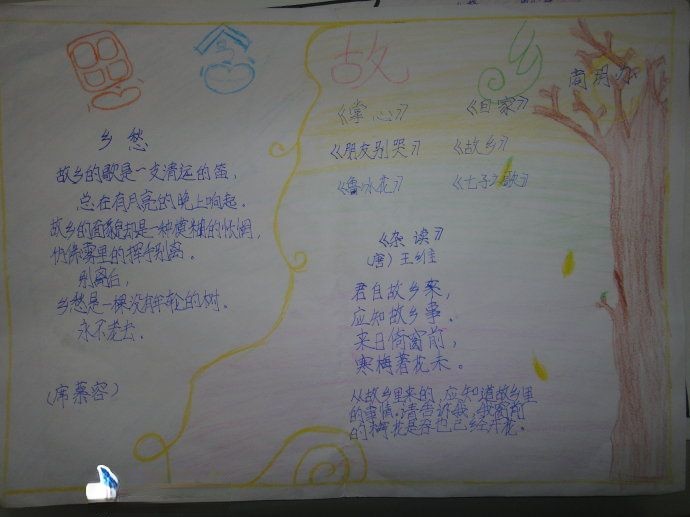 思念故乡
乡愁
故乡的歌是一支清远的笛，
总在有月亮的晚上响起。
故乡的面貌却是一种模糊的怅惘，
仿佛雾里的挥手别离。
别离后，
乡愁是一棵没有年轮的树。
永不老去。
（席慕容）
《掌心》 《回家》
《朋友别哭》 《故乡》
《鲁冰花》 《七子之歌》
《杂诗》
（唐）王维
君自故乡来，
应知故乡事。
来日倚窗前，
寒梅著花未。
从故乡里来的，应知道故乡里
的事情。请告诉我，我窗前
的梅花是否也已经开花。